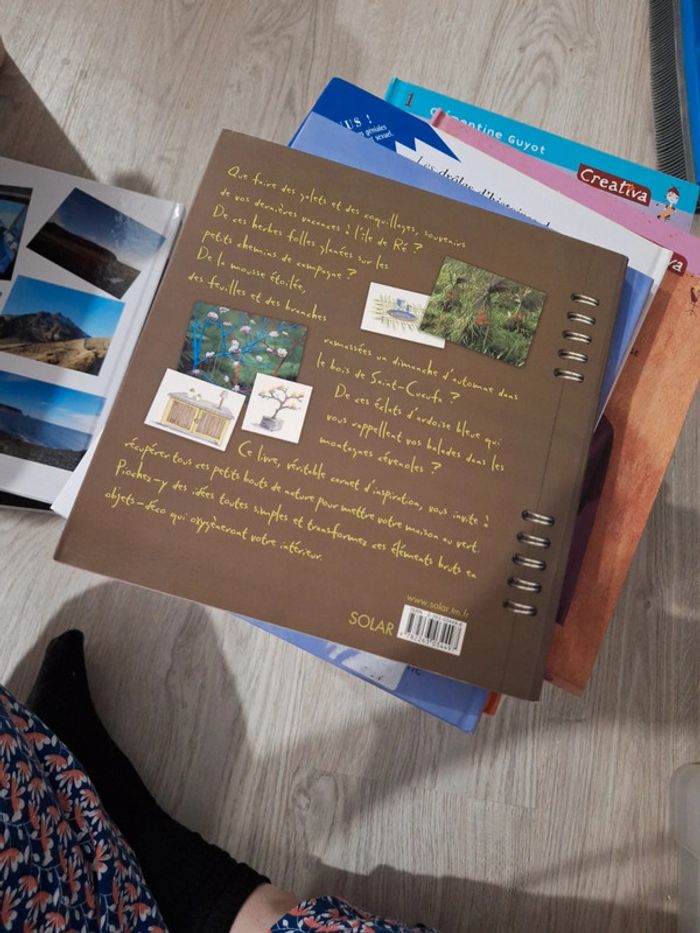 1 Clémentine Guyot
Creativa
US !
géniales
sexuel.
Les drôles d'histoires
va
Que faire des galets et des coquillages, souvenirs
de vos dernières vacances à l'île de Ré ?
De ces herbes folles glanées sur les
petits chemins de campagne ?
De la mousse étoilée,
des feuilles et des branches
ramassées un dimanche d'automne dans
le bois de Saint-Cucufa ?
De ces éclats d'ardoise bleue qui
vous rappellent vos balades dans les
montagnes cévenoles ?
Ce livre, véritable carnet d'inspiration, vous invite à
récupérer tous ces petits bouts de nature pour mettre votre maison au vert.
Piochez-y des idées toutes simples et transformez ces éléments bruts en
objets-déco qui oxygèneront votre intérieur.
www.solar.tm.fr
SOLAR